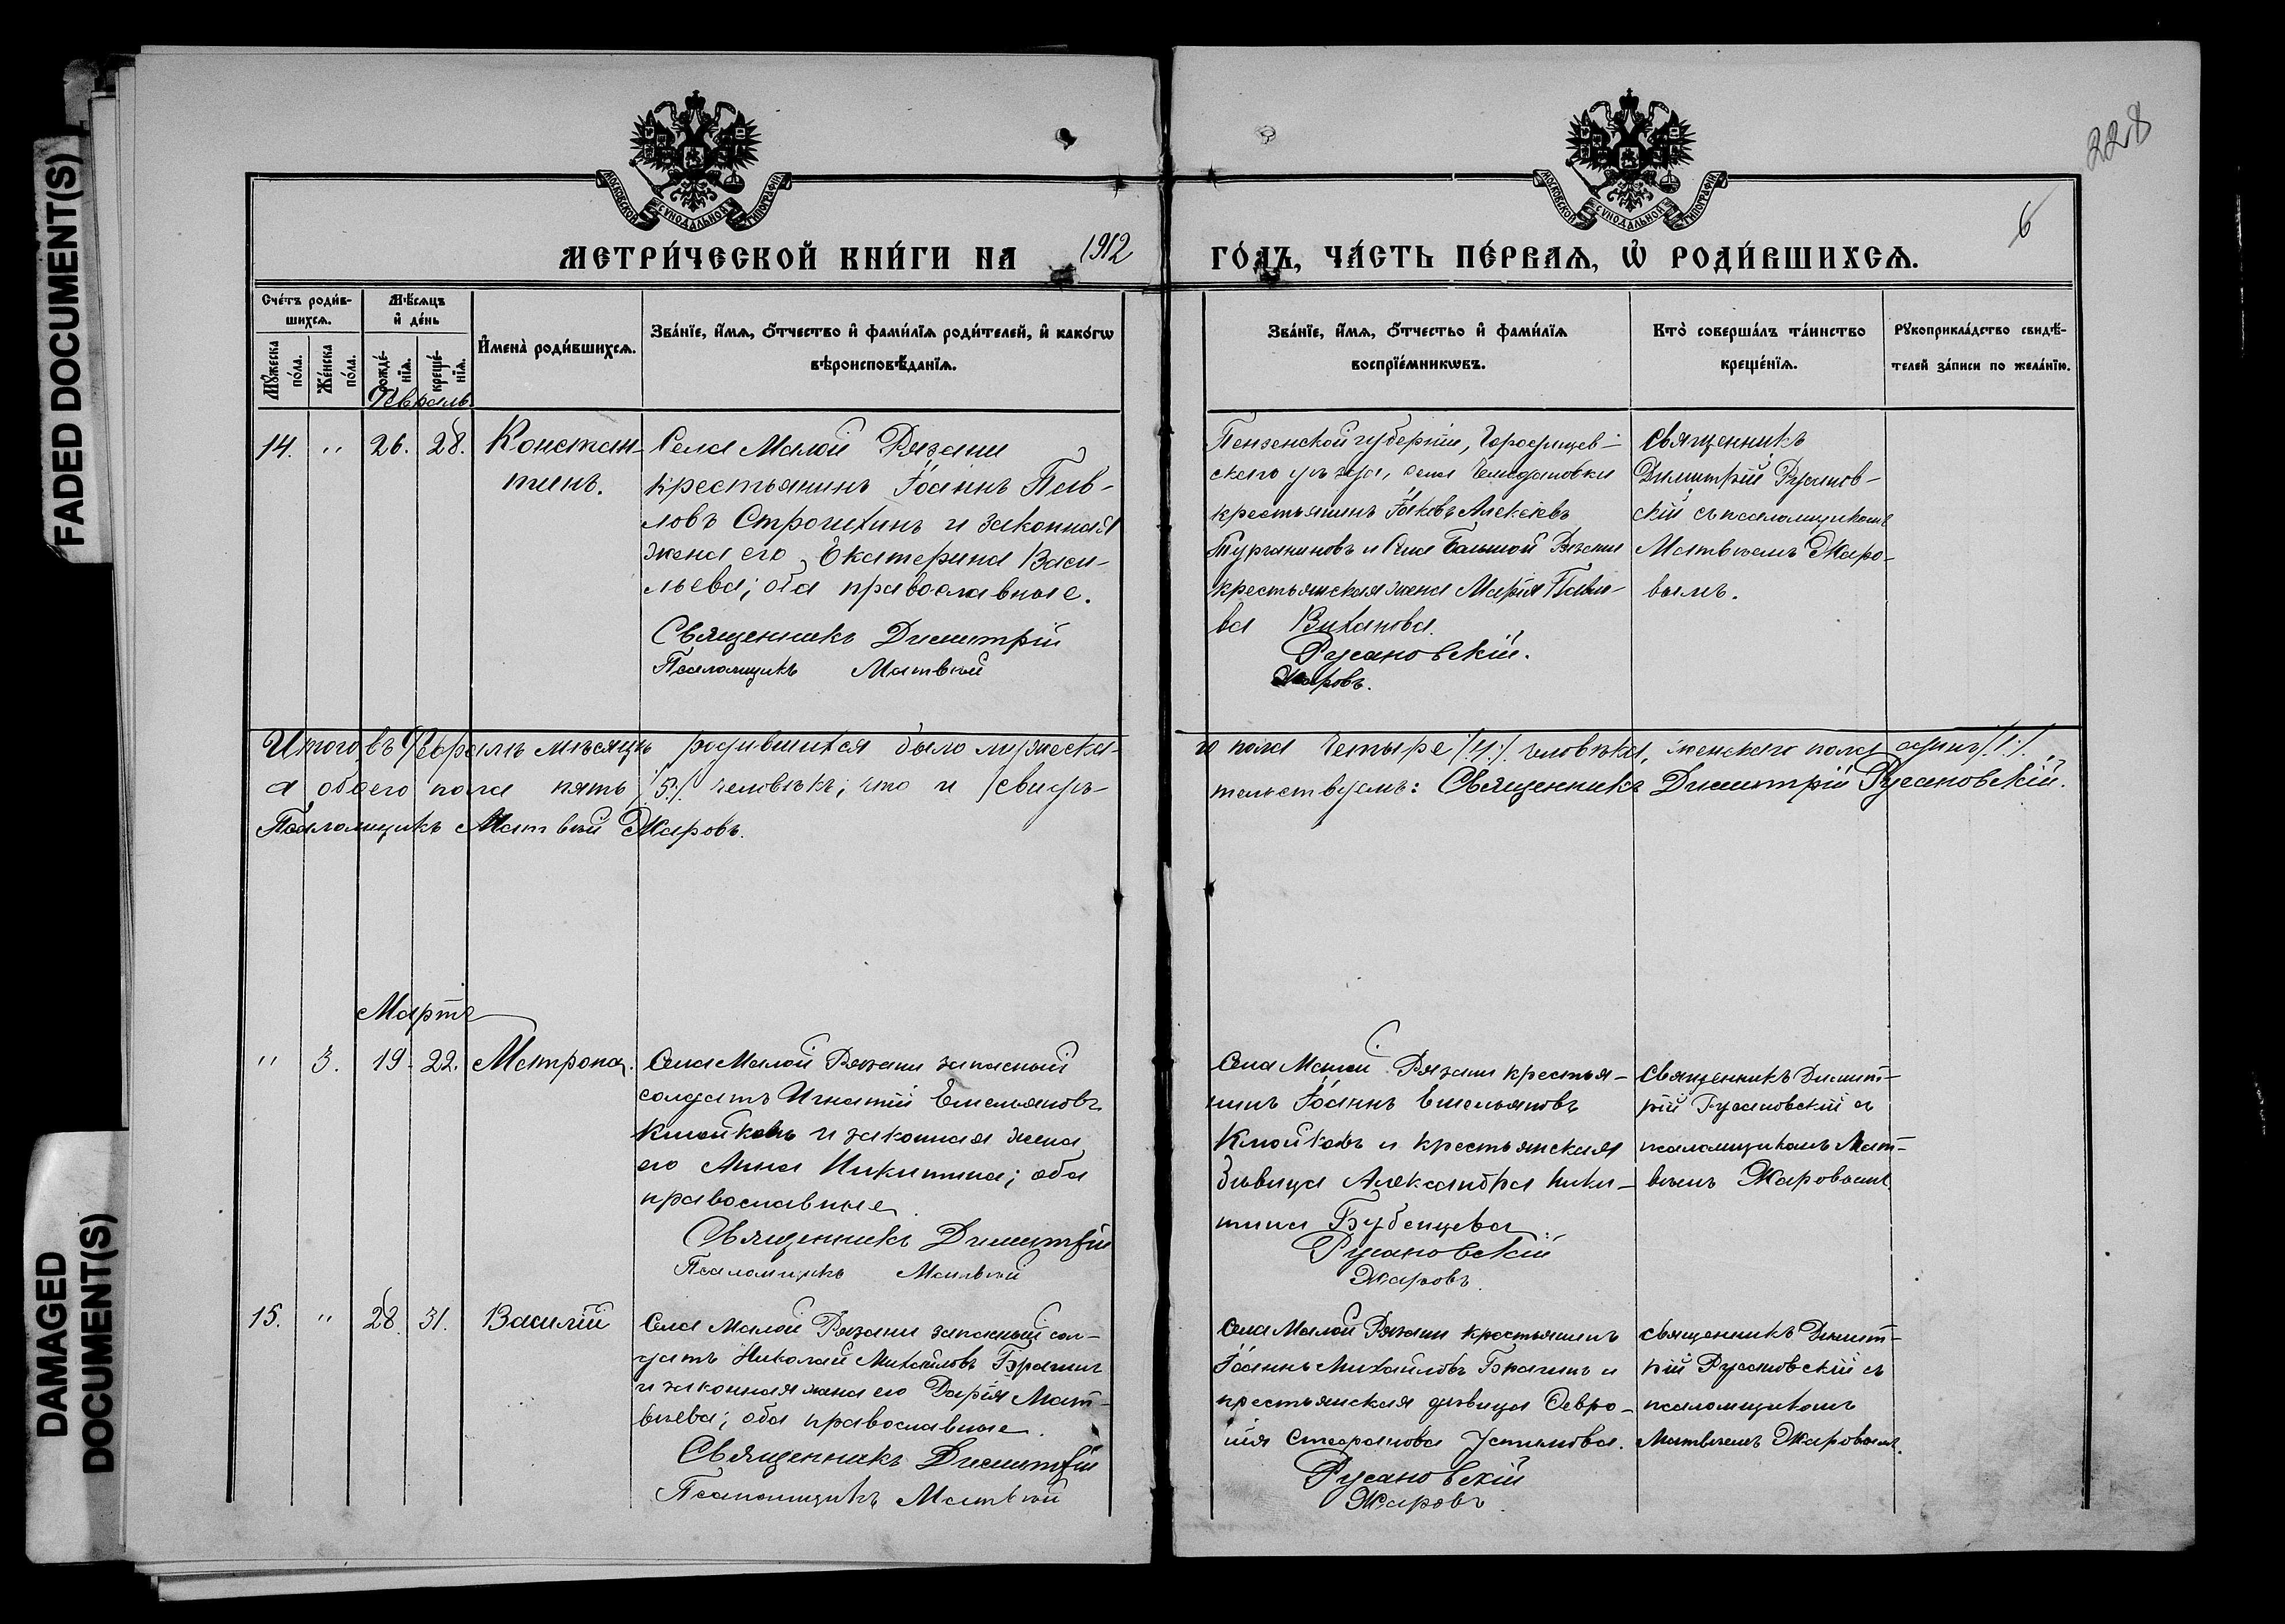 FADED DOCUMENT(S)
DAMAGED DOCUMENT(S)
228
6
МОСКОВСКОЙ СѴНОДАЛЬНОЙ ТИПОГРАФІИ
МОСКОВСКОЙ СѴНОДАЛЬНОЙ ТИПОГРАФІИ
МЕТРИ́ЧЕСКОЙ КНИ́ГИ НА 1912 ГО́ДЪ, ЧА́СТЬ ПЕ́РВАѦ, Ѡ РОДИ́ВШИХСѦ.
Сче́тъ роди́в-
шихсѧ.
Мꙋ́жеска по́ла.
Же́нска по́ла.
Мѣ́сѧцъ
и де́нь
рожде́-
нїѧ.
креще́-
нїѧ.
И҆мена̀ роди́вшихсѧ.
Зва́нїе, и҆́мѧ, ѻ҆́тчество и҆ фами́лїѧ роди́телей, и҆ како́гѡ
вѣроисповѣ́данїѧ.
Зва́нїе, и҆́мѧ, ѻ҆́тчество и҆ фами́лїѧ
воспрїе́мникѡвъ.
Кто̀ соверша́лъ та́инство
креще́нїѧ.
Рꙋкоприкла́дство свидѣ́-
телей за́писи по жела́нїю.
Февраль
14. " 26. 28. Констан-
тинъ.
Села Малой Рязани
крестьянинъ Іоаннъ Пав-
ловъ Строчихинъ и законная
жена его Екатерина Васи-
льева; оба православные.
Священникъ Димитрій
Псаломщикъ Матвѣй
Пензенской губерніи, Городищев-
скаго уѣзда, села Чемодановки
крестьянинъ Іаковъ Алексѣевъ
Турганиновъ и села Большой Рязани
крестьянская жена Марія Павло-
ва Виханова.
Русановскій.
Жаровъ.
Священникъ
Димитрій Русанов-
скій съ псаломщикомъ
Матвѣемъ Жаро-
вымъ.
Итого въ Февралѣ мѣсяцѣ родившихся было мужеска-
го пола четыре /4./ человѣка, женскаго пола одинъ /1./.
а обоего пола пять /5./ человѣкъ, что и свидѣ-
тельствуемъ: Священникъ Димитрій Русановскій.
Псаломщикъ Матвѣй Жаровъ.
Мартъ
" 3. 19. 22. Матрона.
Села Малой Рязани запасный
солдатъ Игнатій Емельяновъ
Клюйковъ и законная жена
его Анна Никитина; оба
православные.
Священникъ Димитрій
Псаломщикъ Матвѣй
Села Малой Рязани крестья-
нинъ Іоаннъ Емельяновъ
Клюйковъ и крестьянская
дѣвица Александра Ники-
тина Бубенцева.
Русановскій
Жаровъ.
Священникъ Димит-
рій Русановскій съ
псаломщикомъ Мат-
вѣемъ Жаровымъ
15. " 28. 31. Василій
Села Малой Рязани запасный сол-
датъ Николай Михайловъ Брагинъ
и законная жена его Дарія Мат-
вѣева; оба православные.
Священникъ Димитрій
Псаломщикъ Матвѣй
Села Малой Рязани крестьянинъ
Іоаннъ Михайловъ Брагинъ и
крестьянская дѣвица Февро-
нія Стефанова Устинова.
Русановскій
Жаровъ.
священникъ Димит-
рій Русановскій съ
псаломщикомъ
Матвѣемъ Жаровымъ.